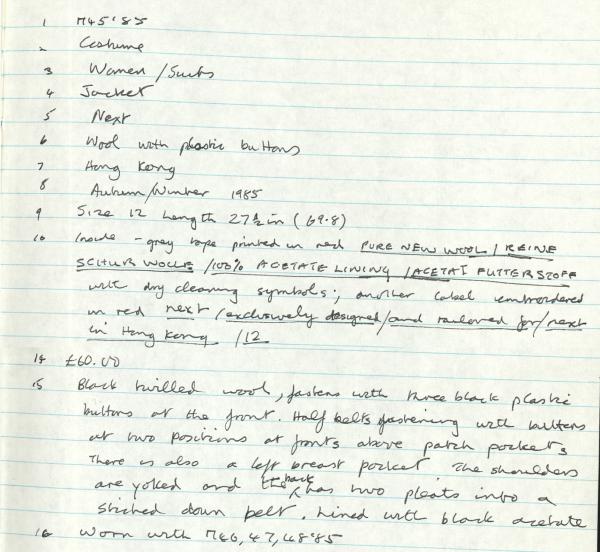 1 M45'85
2 Costume
3 Women / Suits
4 Jacket
5 Next
6 Wool with plastic buttons
7 Hong Kong
8 Autumn/Winter 1985
9 Size 12 Length 27½in (69.8)
10 Inside - grey tape printed in red PURE NEW WOOL / REINE
SCHUR WOLLE / 100% ACETATE LINING / ACETAT FUTTERSTOFF
with dry cleaning symbols; another label embroidered
in red next / exclusively designed / and tailored for / next
in Hong Kong / 12.
14 £60.00
15 Black twilled wool, fastens with three black plastic
buttons at the front. Half belts fastening with buttons
at two positions at fronts above patch pockets.
There is also a left breast pocket. The shoulders
are yoked and the back has two pleats into a
stiched down belt. Lined with black acetate
16 Worn with M46, 47, 48'85